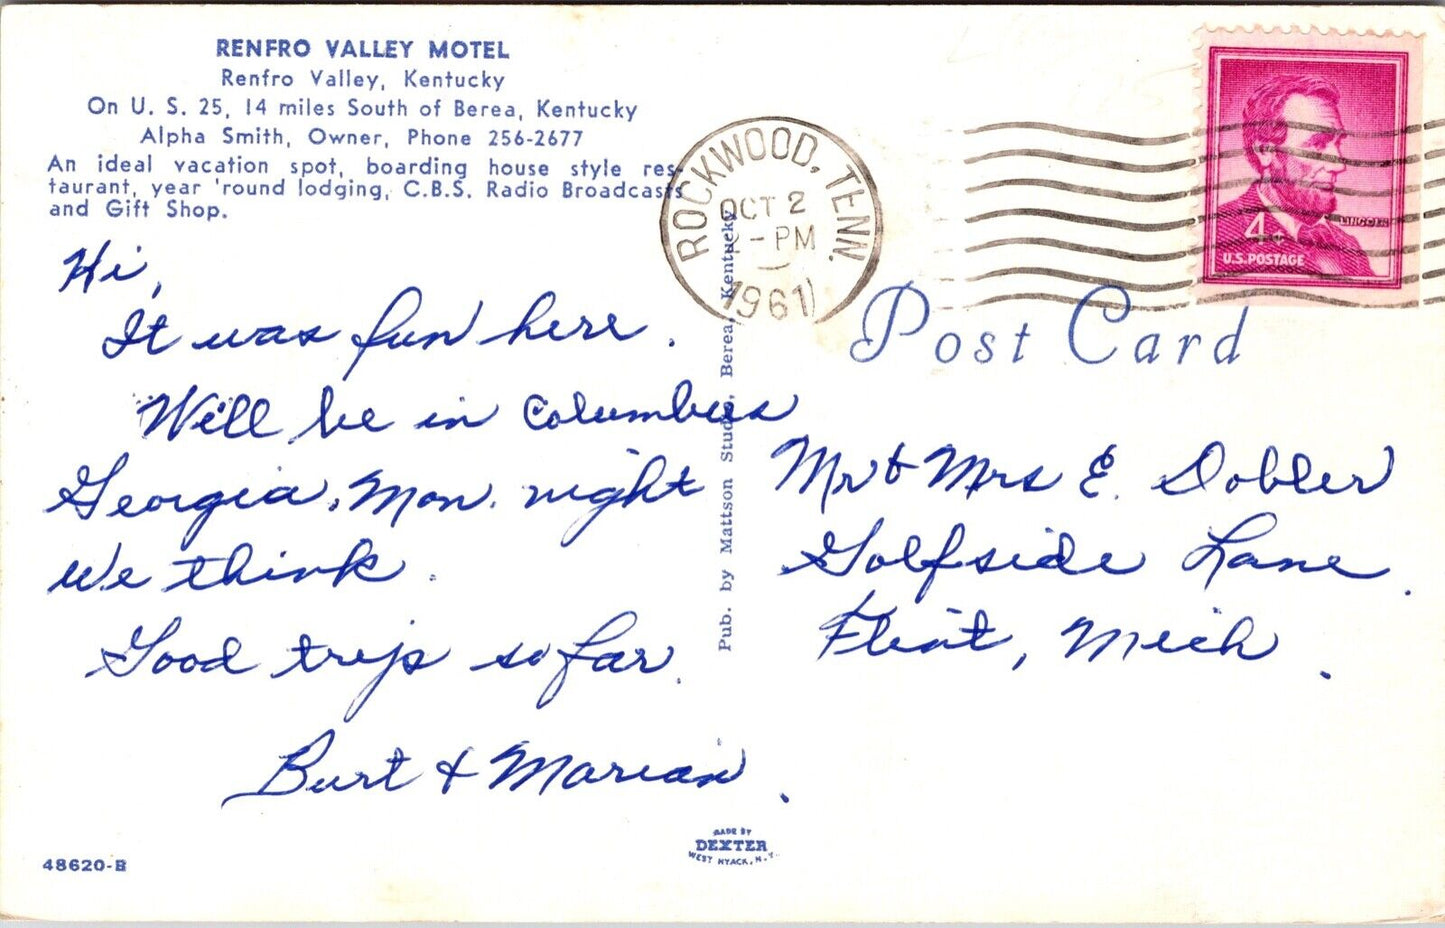 RENFRO VALLEY MOTEL
Renfro Valley, Kentucky
On U. S. 25, 14 miles South of Berea, Kentucky
Alpha Smith, Owner, Phone 256-2677
An ideal vacation spot, boarding house style res-
taurant, year 'round lodging, C.B.S. Radio Broadcasts
and Gift Shop.
Hi,
It was fun here.
Will be in Columbus
Georgia, Mon. night
we think.
Good trip so far.
Burt & Marian.
48620-B
Pub. by Mattson Studio, Berea, Kentucky
MADE BY
DEXTER
WEST NYACK, N.Y.
ROCKWOOD, TENN.
OCT 2
PM
1961
LINCOLN
4¢
U.S. POSTAGE
Post Card
Mr & Mrs E. Dobler
Golfside Lane.
Flint, Mich.